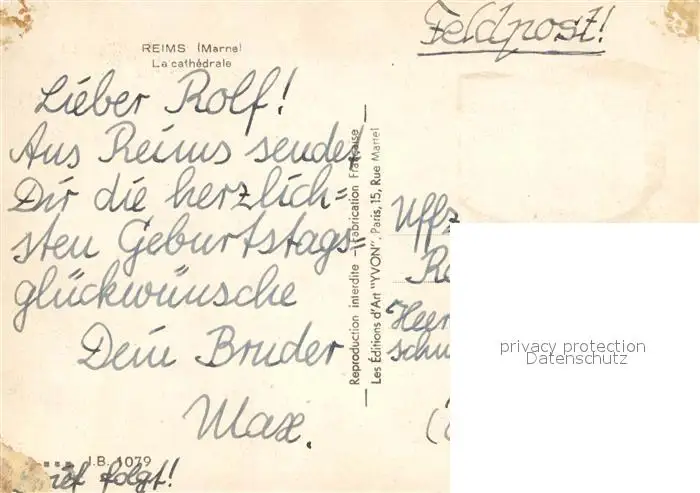 REIMS (Marne)
La cathédrale
Feldpost!
Lieber Rolf!
Aus Reims sendet
Dir die herzlich=
sten Geburtstags=
glückwünsche
Dein Bruder
Max.
J.B. 1079
folgt!
Reproduction interdite - Fabrication Française
Les Éditions d'Art "YVON", Paris, 15, Rue Martel
Uffz
Heer
schu
privacy protection
Datenschutz